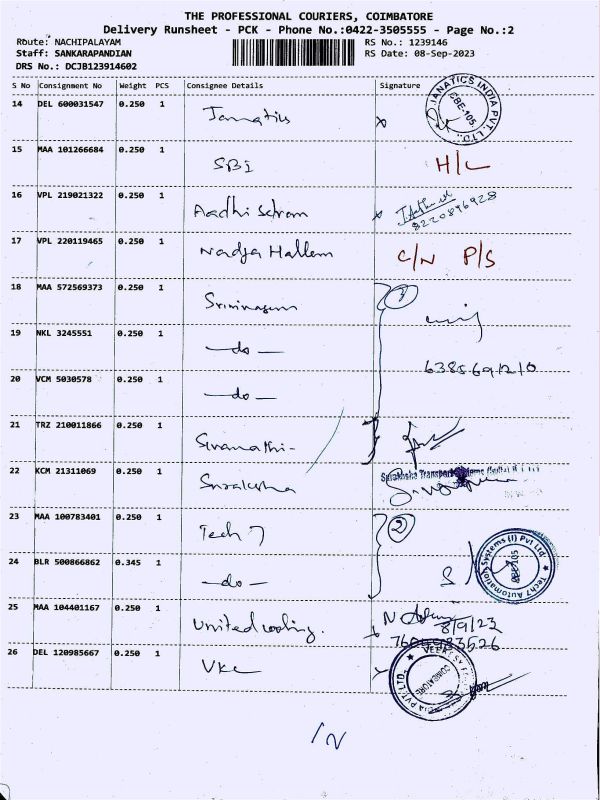 THE PROFESSIONAL COURIERS, COIMBATORE
Delivery Runsheet - PCK - Phone No.:0422-3505555 - Page No.:2
Route: NACHIPALAYAM RS No.: 1239146
Staff: SANKARAPANDIAN RS Date: 08-Sep-2023
DRS No.: DCJB123914602
S No Consignment No Weight PCS Consignee Details Signature
14 DEL 600031547 0.250 1 Janatics JANATICS INDIA PVT. LTD. CBE-105
15 MAA 101266684 0.250 1 SBI H/L
16 VPL 219021322 0.250 1 8220896928
17 VPL 220119465 0.250 1 C/N P/S
18 MAA 572569373 0.250 1 1
19 NKL 3245551 0.250 1 -do-
20 VCM 5030578 0.250 1 -do-
21 TRZ 210011866 0.250 1
22 KCM 21311069 0.250 1
23 MAA 100783401 0.250 1 Tech 7 2
24 BLR 500866862 0.345 1 -do- Tech7 Automation Systems (I) Pvt Ltd
25 MAA 104401167 0.250 1 United 8/9/23
26 DEL 120985667 0.250 1 VKC COIMBATORE